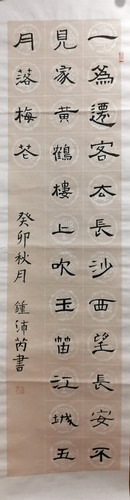 一為遷客去長沙西望長安不
見家黃鶴樓上吹玉笛江城五
月落梅花
癸卯秋月
鍾沛芮書